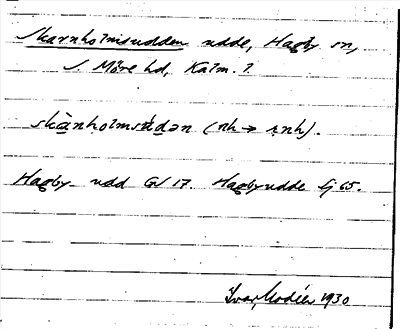 Skarnholmsudden udde, Hagby sn,
S. Möre hd, Kalm. l.
skànholmsùdən (nh → rnh).
Hagby udd GV 17 Hagbyudde Gj 65.
Ivar Modéer 1930